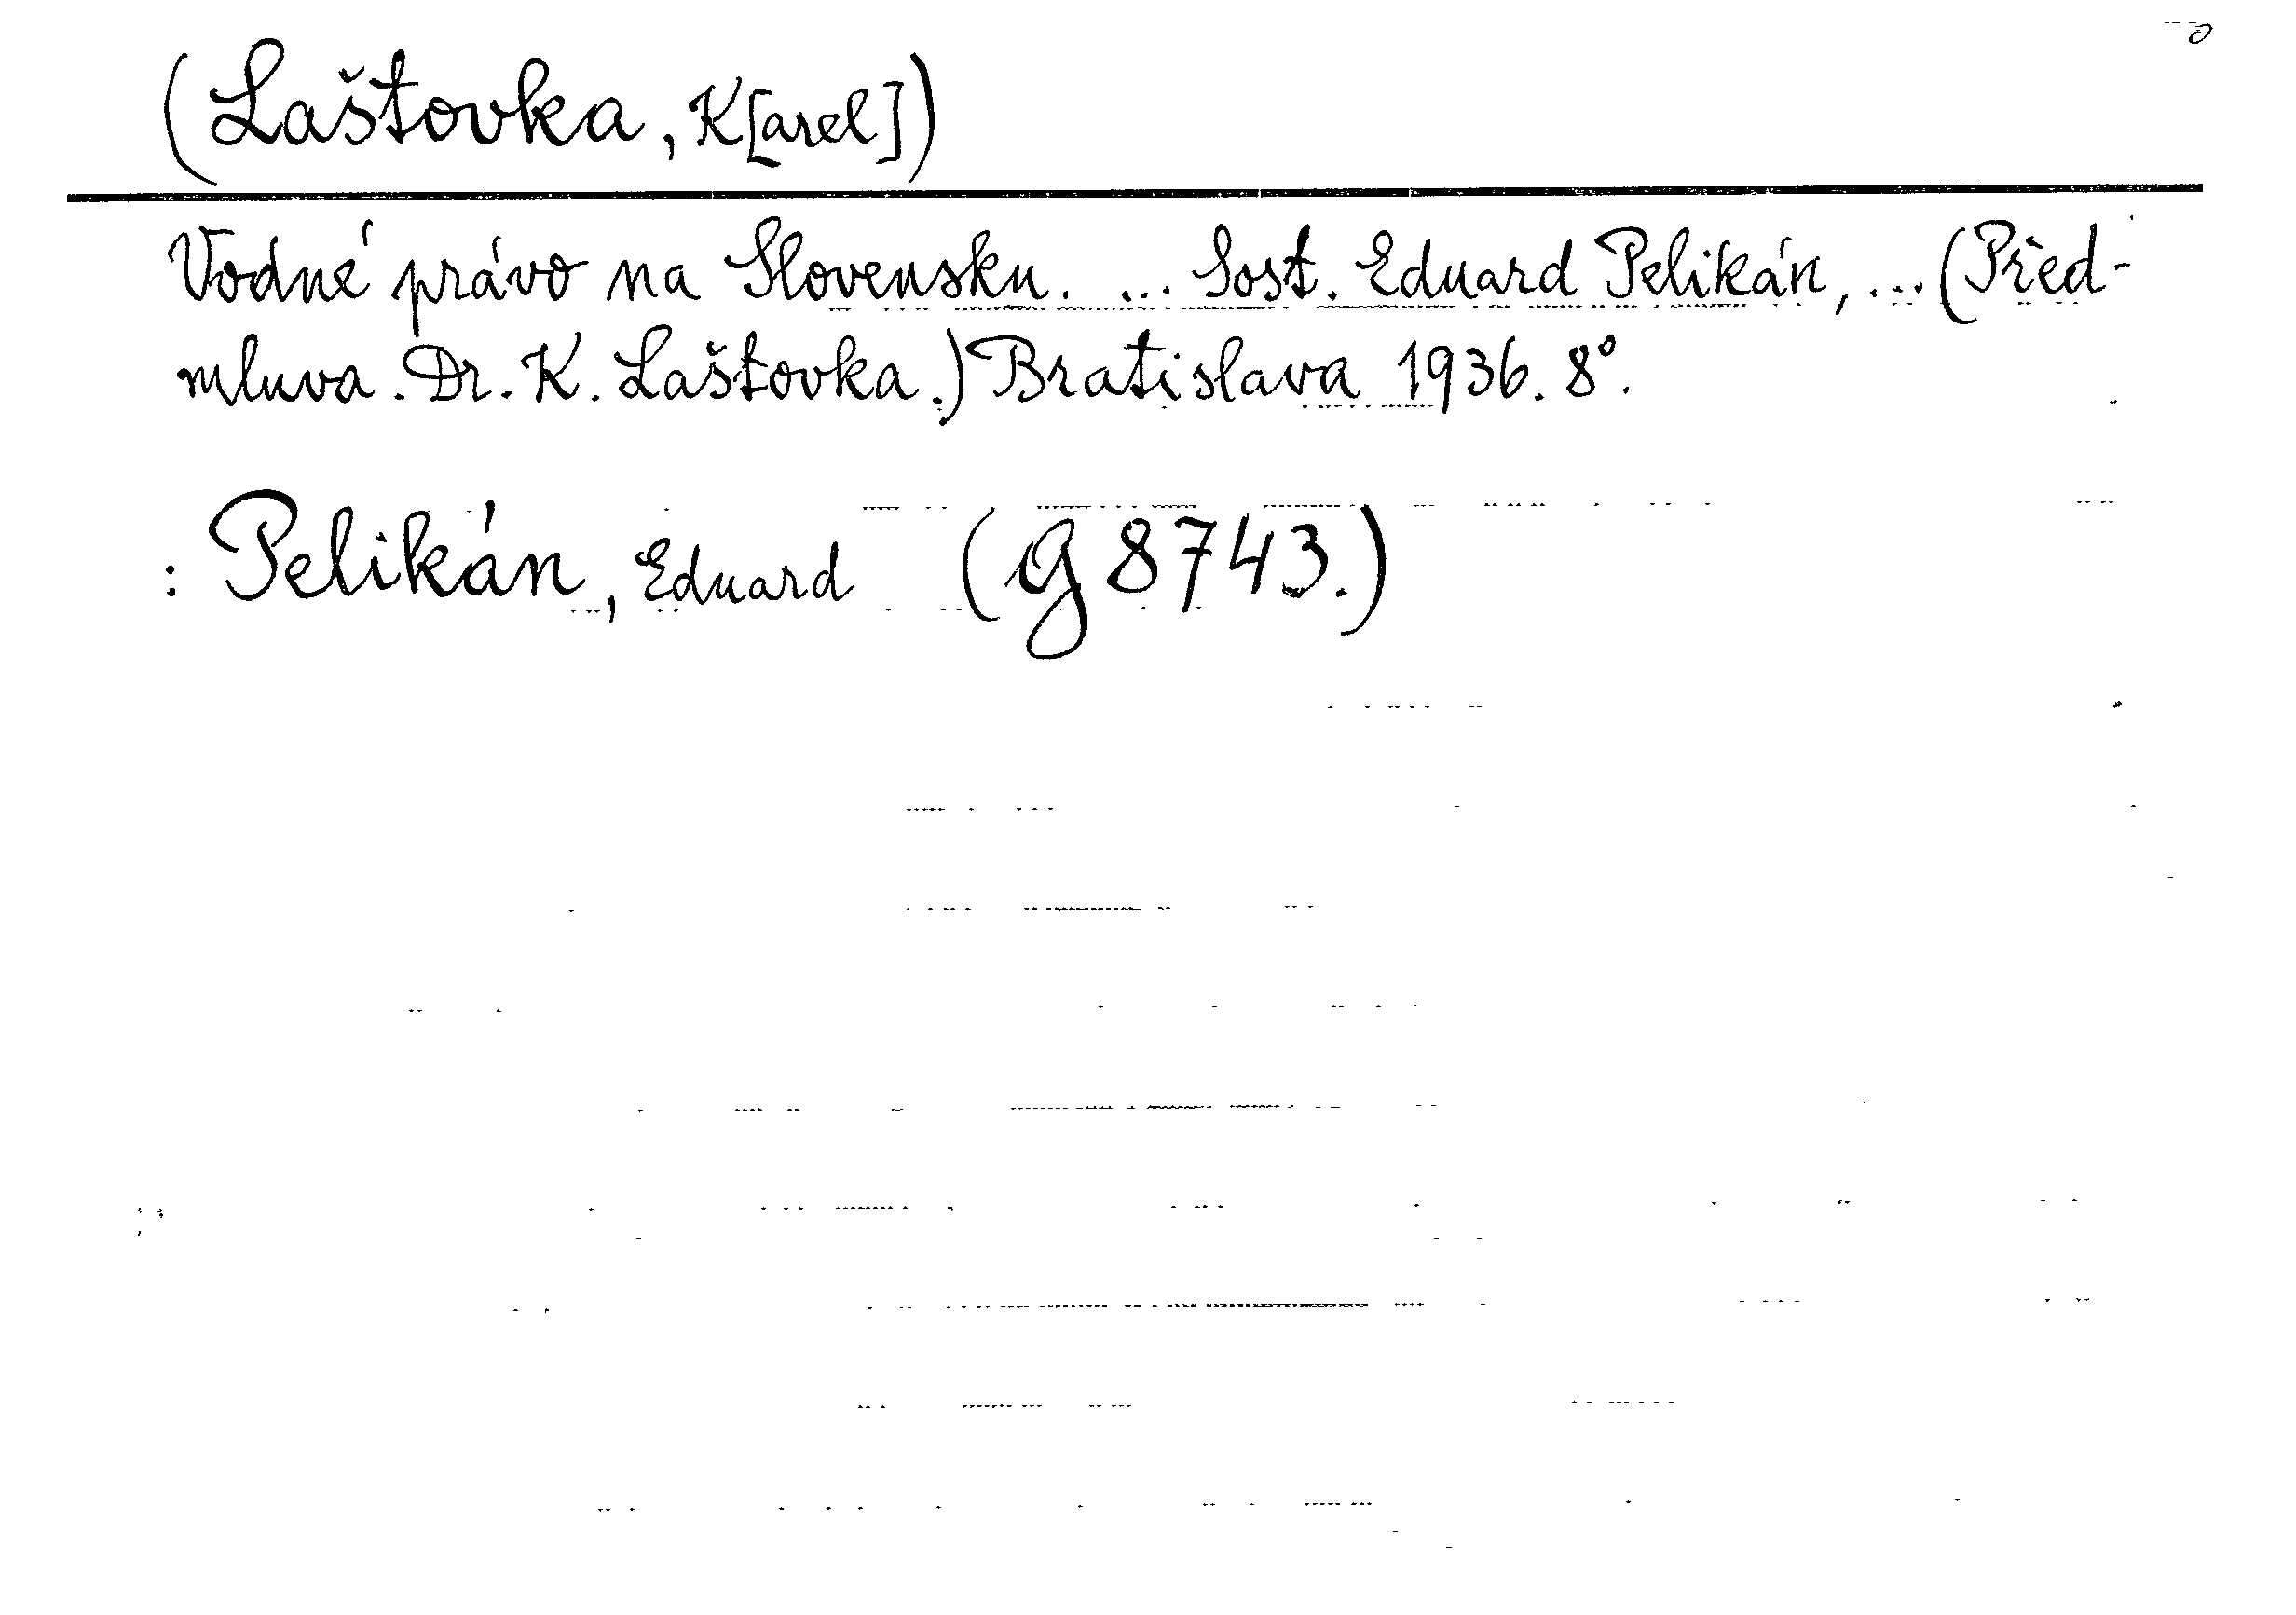 (Laštovka, K[arel])
Vodné právo na Slovensku. ... Sost. Eduard Pelikán, ... (Před-
mluva. Dr. K. Laštovka.) Bratislava 1936. 8°.
: Pelikán, Eduard (G 8743.)